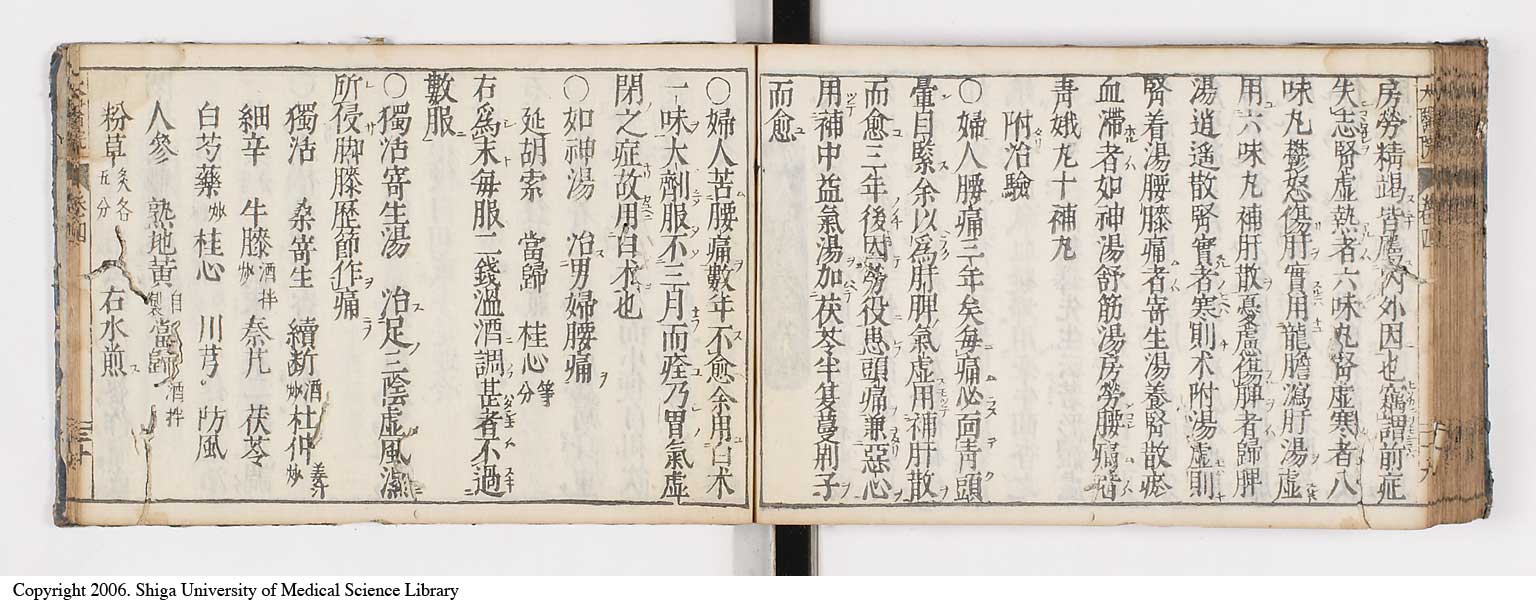 房勞精竭皆屬內外因也竊謂前症
失志腎虛熱者六味丸腎虛寒者八
味丸鬱怒傷肝實用龍膽瀉肝湯虛
用六味丸補肝散憂慮傷脾者歸脾
湯逍遙散腎實者寒則朮附湯虛則
腎着湯腰膝痛者寄生湯養腎散瘀
血滯者如神湯舒筋湯房勞腰痛者
青娥丸十補丸
附治驗
〇婦人腰痛三年矣每痛必面青頭
暈目緊余以爲肝脾氣虛用補肝散
而愈三年後因勞役患頭痛兼惡心
用補中益氣湯加茯苓半夏蔓荊子
而愈
〇婦人苦腰痛數年不愈余用白朮
一味大劑服不三月而痊乃胃氣虛
閉之症故用白朮也
〇如神湯 治男婦腰痛
延胡索 當歸 桂心等分
右爲末每服二錢溫酒調甚者不過
數服
〇獨活寄生湯 治足三陰虛風濕
所侵脚膝歷節作痛
獨活 桑寄生 續斷酒炒 杜仲姜汁炒
細辛 牛膝酒拌炒 秦艽 茯苓
白芍藥炒 桂心 川芎 防風
人參 熟地黃自製 當歸酒拌
粉草炙各五分 右水煎
三十
Copyright 2006. Shiga University of Medical Science Library